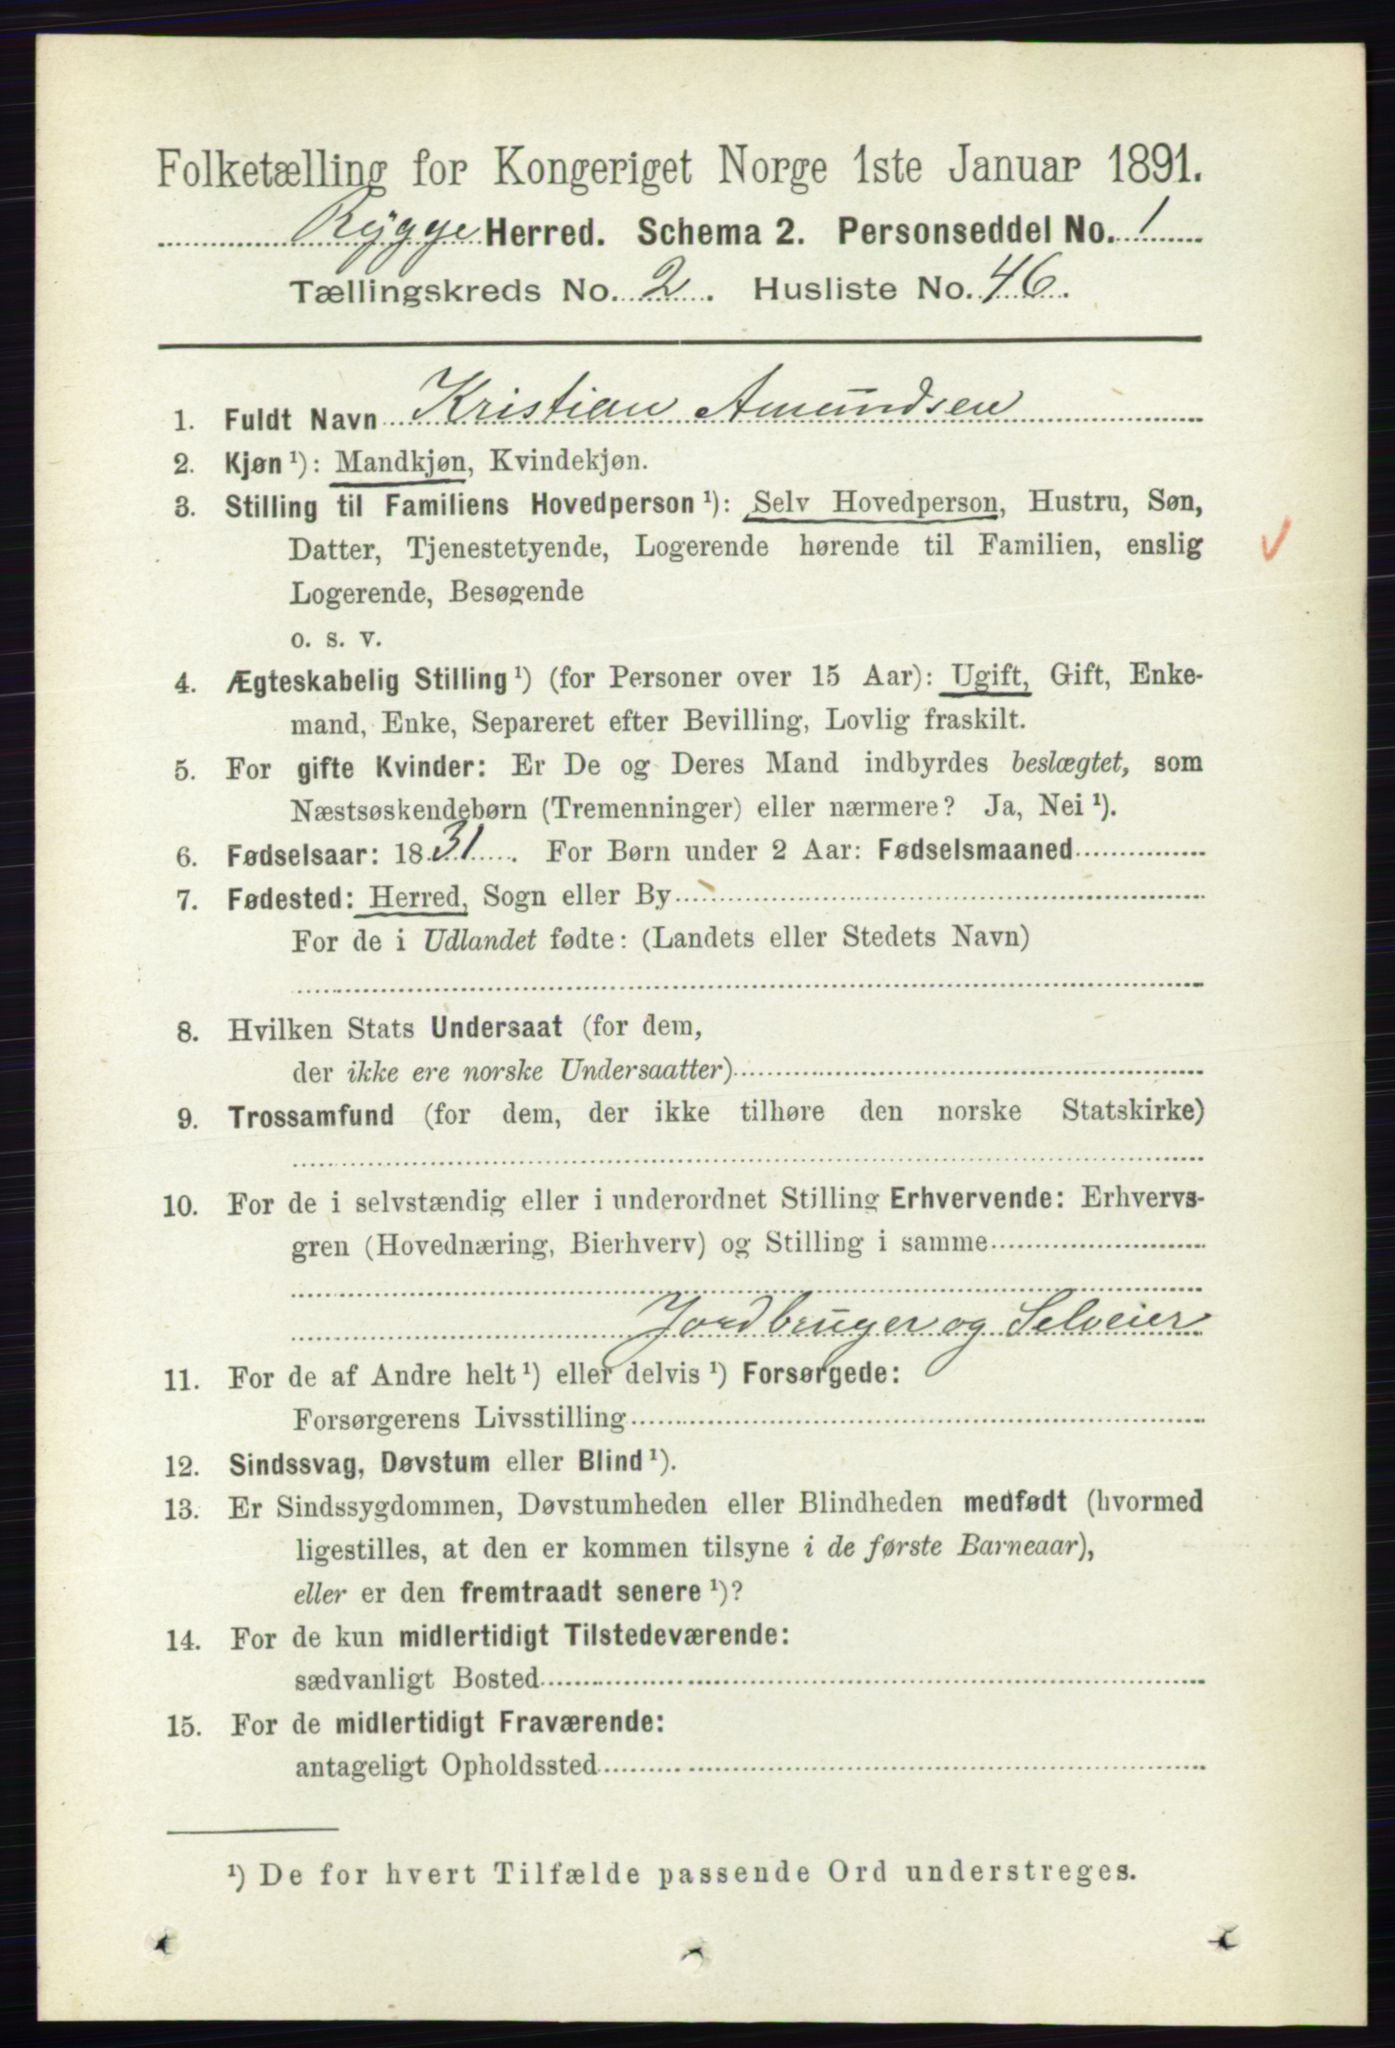 Folketælling for Kongeriget Norge 1ste Januar 1891.
Rygge Herred. Schema 2. Personseddel No. 1
Tællingskreds No. 2. Husliste No. 46.
1. Fuldt Navn Kristian Amundsen
2. Kjøn ¹): Mandkjøn, Kvindekjøn.
3. Stilling til Familiens Hovedperson ¹): Selv Hovedperson, Hustru, Søn,
Datter, Tjenestetyende, Logerende hørende til Familien, enslig
Logerende, Besøgende
o. s. v.
4. Ægteskabelig Stilling ¹) (for Personer over 15 Aar): Ugift, Gift, Enke-
mand, Enke, Separeret efter Bevilling, Lovlig fraskilt.
5. For gifte Kvinder: Er De og Deres Mand indbyrdes beslægtet, som
Næstsøskendebørn (Tremenninger) eller nærmere? Ja, Nei ¹).
6. Fødselsaar: 1831. For Børn under 2 Aar: Fødselsmaaned
7. Fødested: Herred, Sogn eller By
For de i Udlandet fødte: (Landets eller Stedets Navn)
8. Hvilken Stats Undersaat (for dem,
der ikke ere norske Undersaatter)
9. Trossamfund (for dem, der ikke tilhøre den norske Statskirke)
10. For de i selvstændig eller i underordnet Stilling Erhvervende: Erhvervs-
gren (Hovednæring, Bierhverv) og Stilling i samme
Jordbruger og Selveier
11. For de af Andre helt ¹) eller delvis ¹) Forsørgede:
Forsørgerens Livsstilling
12. Sindssvag, Døvstum eller Blind ¹).
13. Er Sindssygdommen, Døvstumheden eller Blindheden medfødt (hvormed
ligestilles, at den er kommen tilsyne i de første Barneaar),
eller er den fremtraadt senere ¹)?
14. For de kun midlertidigt Tilstedeværende:
sædvanligt Bosted
15. For de midlertidigt Fraværende:
antageligt Opholdssted
¹) De for hvert Tilfælde passende Ord understreges.